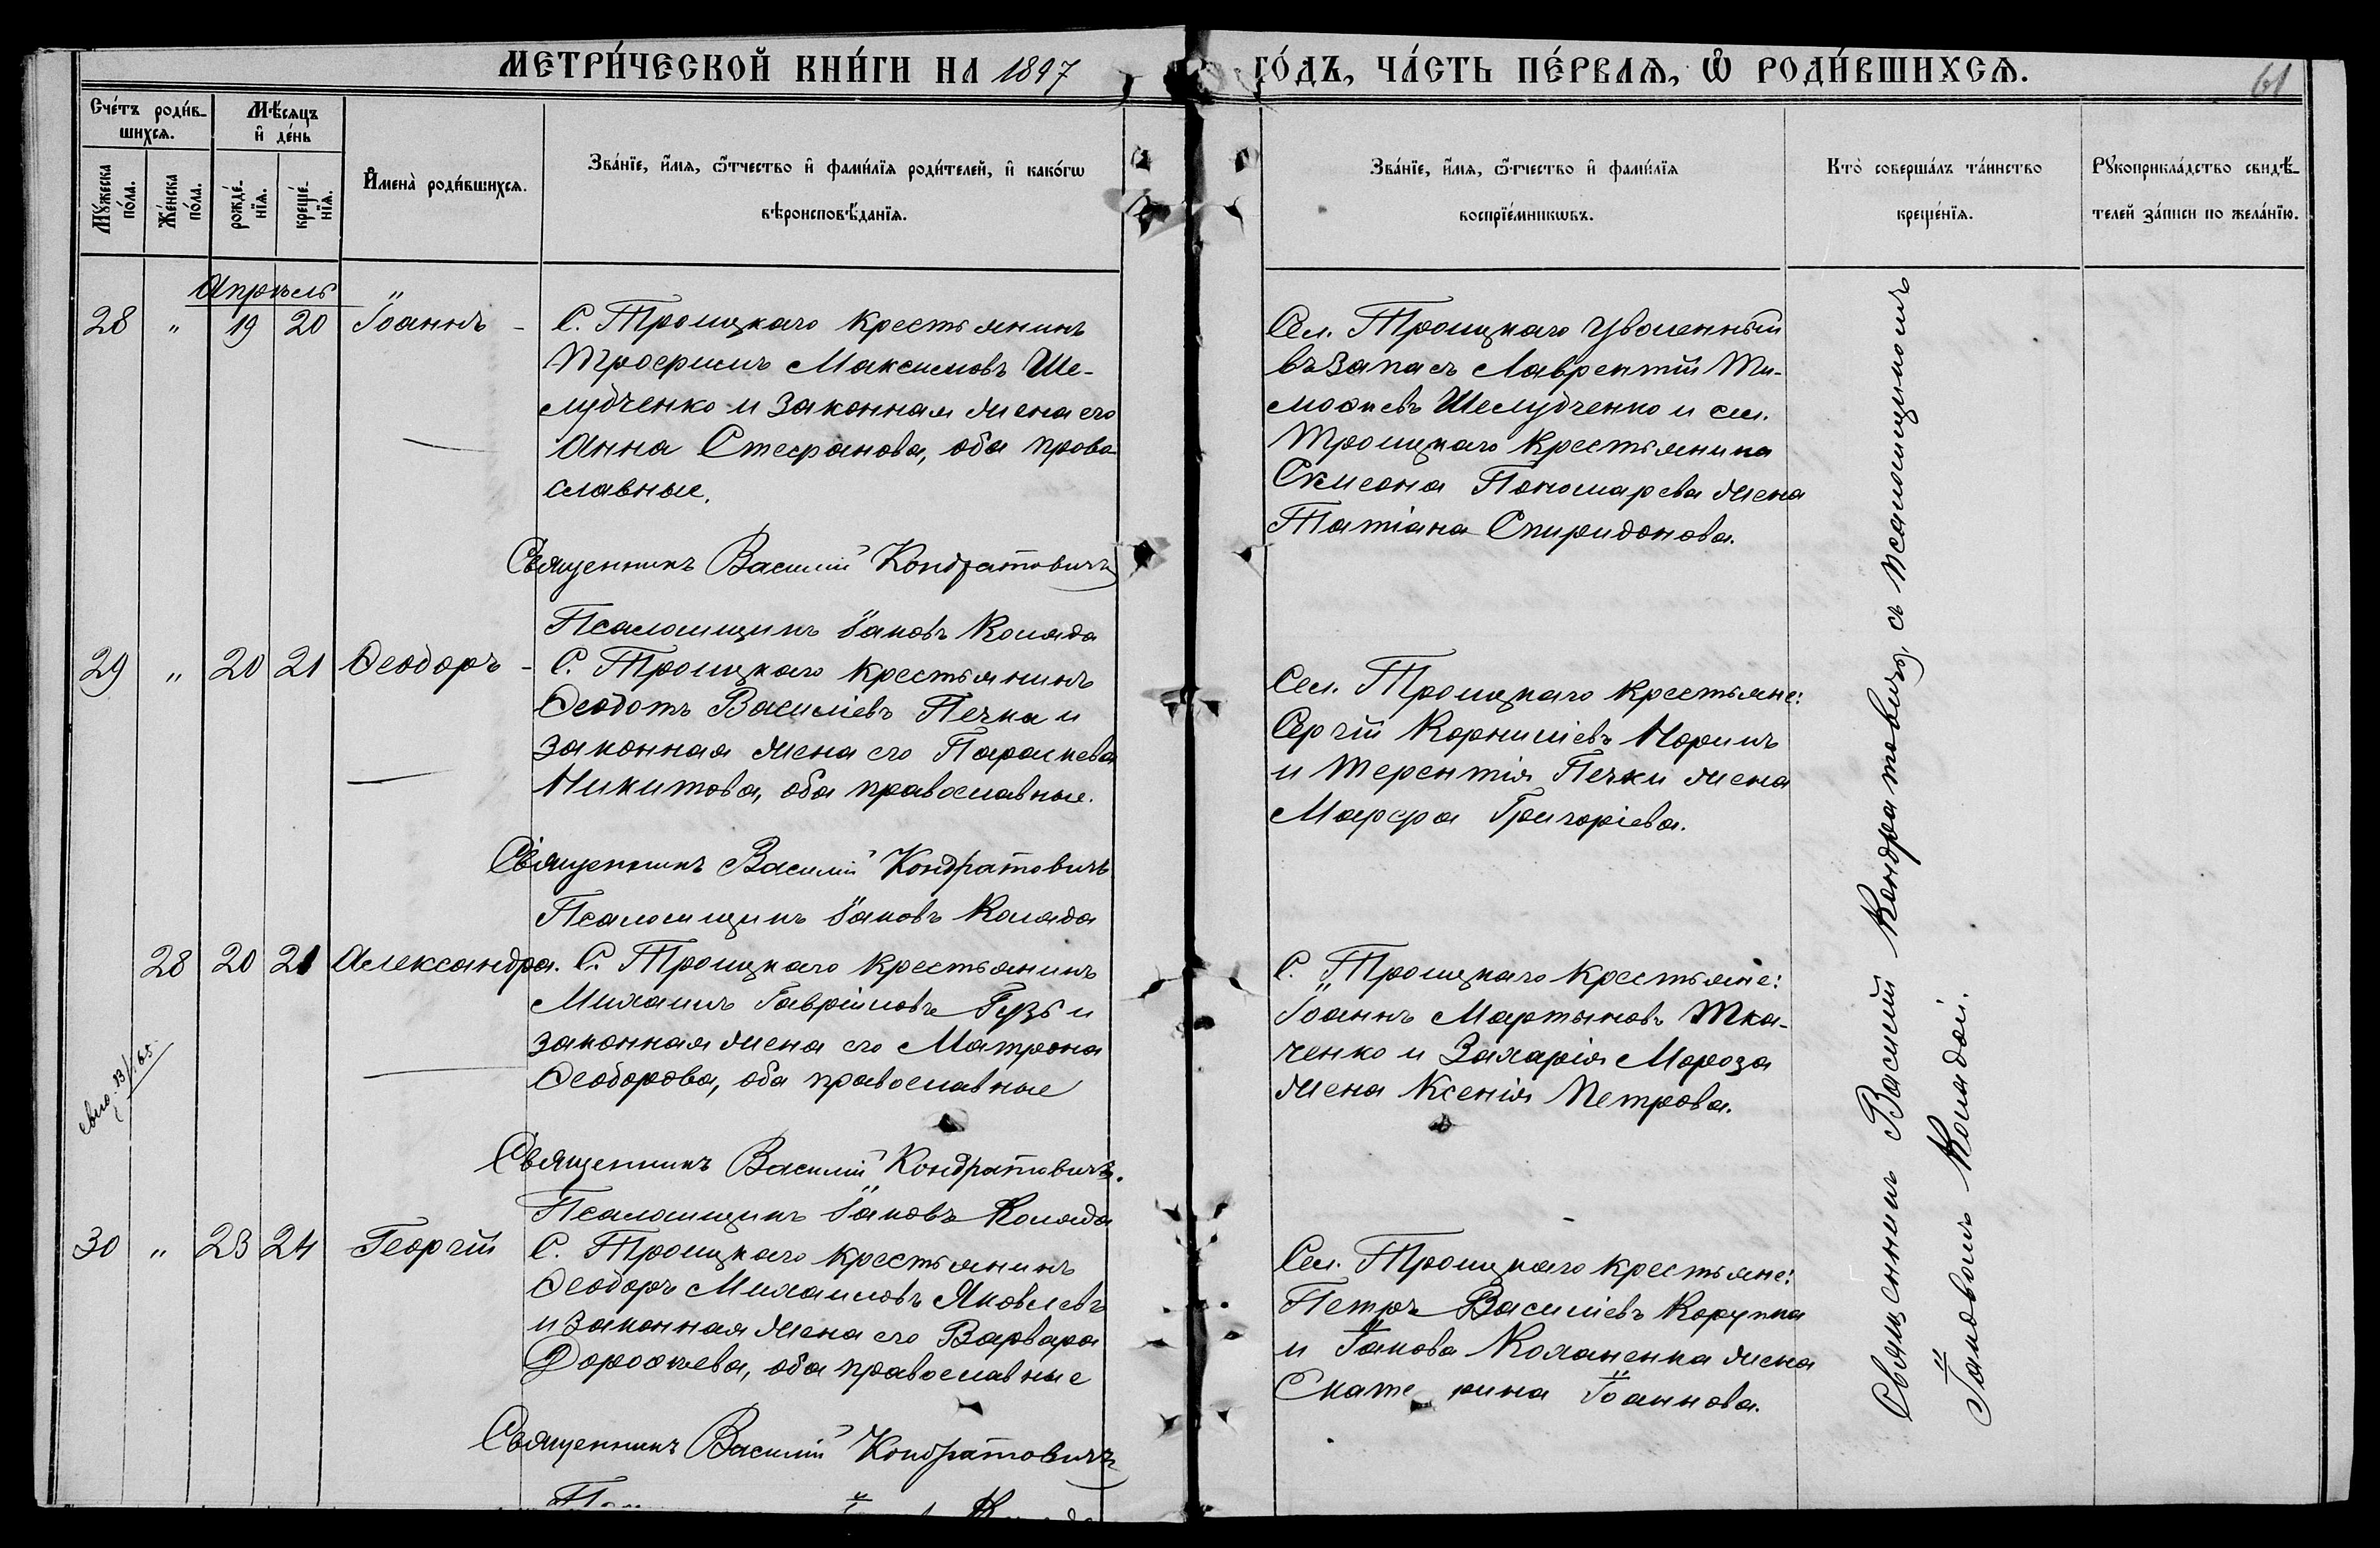 МЕТРИ́ЧЕСКОЙ КНИ́ГИ НА 1897 ГО́ДЪ, ЧА́СТЬ ПЕ́РВАѦ, Ѡ҆ РОДИ́ВШИХСѦ.
61
Сче́тъ роди́в-
шихсѧ.
Мꙋ́жеска
по́ла.
Же́нска
по́ла.
Мѣ́сяцъ
и҆ де́нь
рожде́-
нїѧ.
креще́-
нїѧ.
И҆мена̀ роди́вшихсѧ.
Зва́нїе, и҆́мѧ, ѻ҆́тчество и҆ фами́лїѧ роди́телей, и҆ како́гѡ
вѣроисповѣ́данїѧ.
Зва́нїе, и҆́мѧ, ѻ҆́тчество и҆ фами́лїѧ
воспрїе́мникѡвъ.
Кто̀ соверша́лъ та́инство
креще́нїѧ.
Рꙋкоприкла́дство свидѣ́-
телей за́писи по жела́нїю.
Апрѣль
28 " 19 20 Іоаннъ -
С. Троицкаго крестьянинъ
Трофимъ Максимовъ Ше-
лудченко и законная жена его
Анна Стефанова, оба право-
славные.
Священникъ Василій Кондратовичъ
Псаломщикъ Іаковъ Коляда
Сел. Троицкаго уволенный
въ запасъ Лаврентій Ти-
моѳеевъ Шелудченко и сел.
Троицкаго крестьянина
Симеона Пономарева жена
Татіана Спиридонова.
29 " 20 21 Ѳеодоръ -
С. Троицкаго крестьянинъ
Ѳеодотъ Василіевъ Печка и
законная жена его Параскева
Никитова, оба православные.
Священникъ Василій Кондратовичъ
Псаломщикъ Іаковъ Коляда
Сел. Троицкаго крестьяне:
Сергій Корниліевъ Норинъ
и Терентія Печки жена
Марфа Григоріева.
28 20 21 Александра.
С. Троицкаго крестьянинъ
Михаилъ Гавріиловъ Гузь и
законная жена его Матрона
Ѳеодорова, оба православные
Священникъ Василій Кондратовичъ.
Псаломщикъ Іаковъ Коляда
С. Троицкаго крестьяне:
Іоаннъ Мартыновъ Тка-
ченко и Захарія Мороза
жена Ксенія Петрова.
30 " 23 24 Георгій
С. Троицкаго крестьянинъ
Ѳеодоръ Михаиловъ Яковлевъ
и законная жена его Варвара
Дороѳеева, оба православные
Священникъ Василій Кондратовичъ
Сел. Троицкаго крестьяне:
Петръ Василіевъ Корупка
и Іакова Коханенка жена
Екатерина Іоаннова.
Священникъ Василій Кондратовичъ, съ псаломщикомъ
Іаковомъ Колядой.